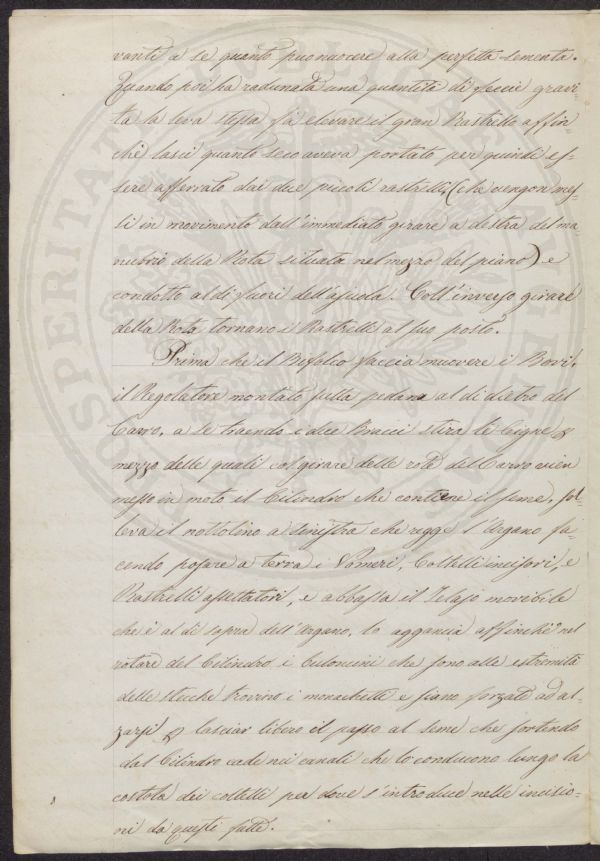 vanti a se quanto può nuocere alla perfetta sementa.
Quando poi ha radunata una quantità di feccie gravi-
ta la leva stessa fà elevare il gran Rastrello affin-
chè lasci quanto seco aveva portato per quindi es-
sere afferrato dai due piccoli rastrelli (che vengon mes-
si in movimento dall'immediato girare a destra del ma-
nubrio della Rota situata nel mezzo del piano) e
condotto al di fuori dell'ajuola. Coll'inverso girare
della Rota tornano i Rastrelli al suo posto.
Prima che il Bifolco faccia muovere i Bovi,
il Regolatore montato sulla pedana al di dietro del
Carro, a se traendo i due Bracci stira le Cigne p
mezzo delle quali col girare delle rote del Carro vien
messo in moto il Cilindro che contiene il seme, sol-
leva il nottolino a sinistra che regge l'Argano fa-
cendo posare a terra i Vomeri, Coltelli incisori, e
Rastrelli assettatori, e abbassa il Telajo movibile
che è al di sopra dell'Argano, lo aggancia affinchè nel
rotare del Cilindro i che sono alle estremità
delle stecche trovino i monachetti e siano forzati ad al-
zarsi, p lasciar libero il passo al seme che sortendo
dal Cilindro cade nei canali che lo conducono lungo la
costola dei coltelli per dove s'introduce nelle incisio-
ni da questi fatte.